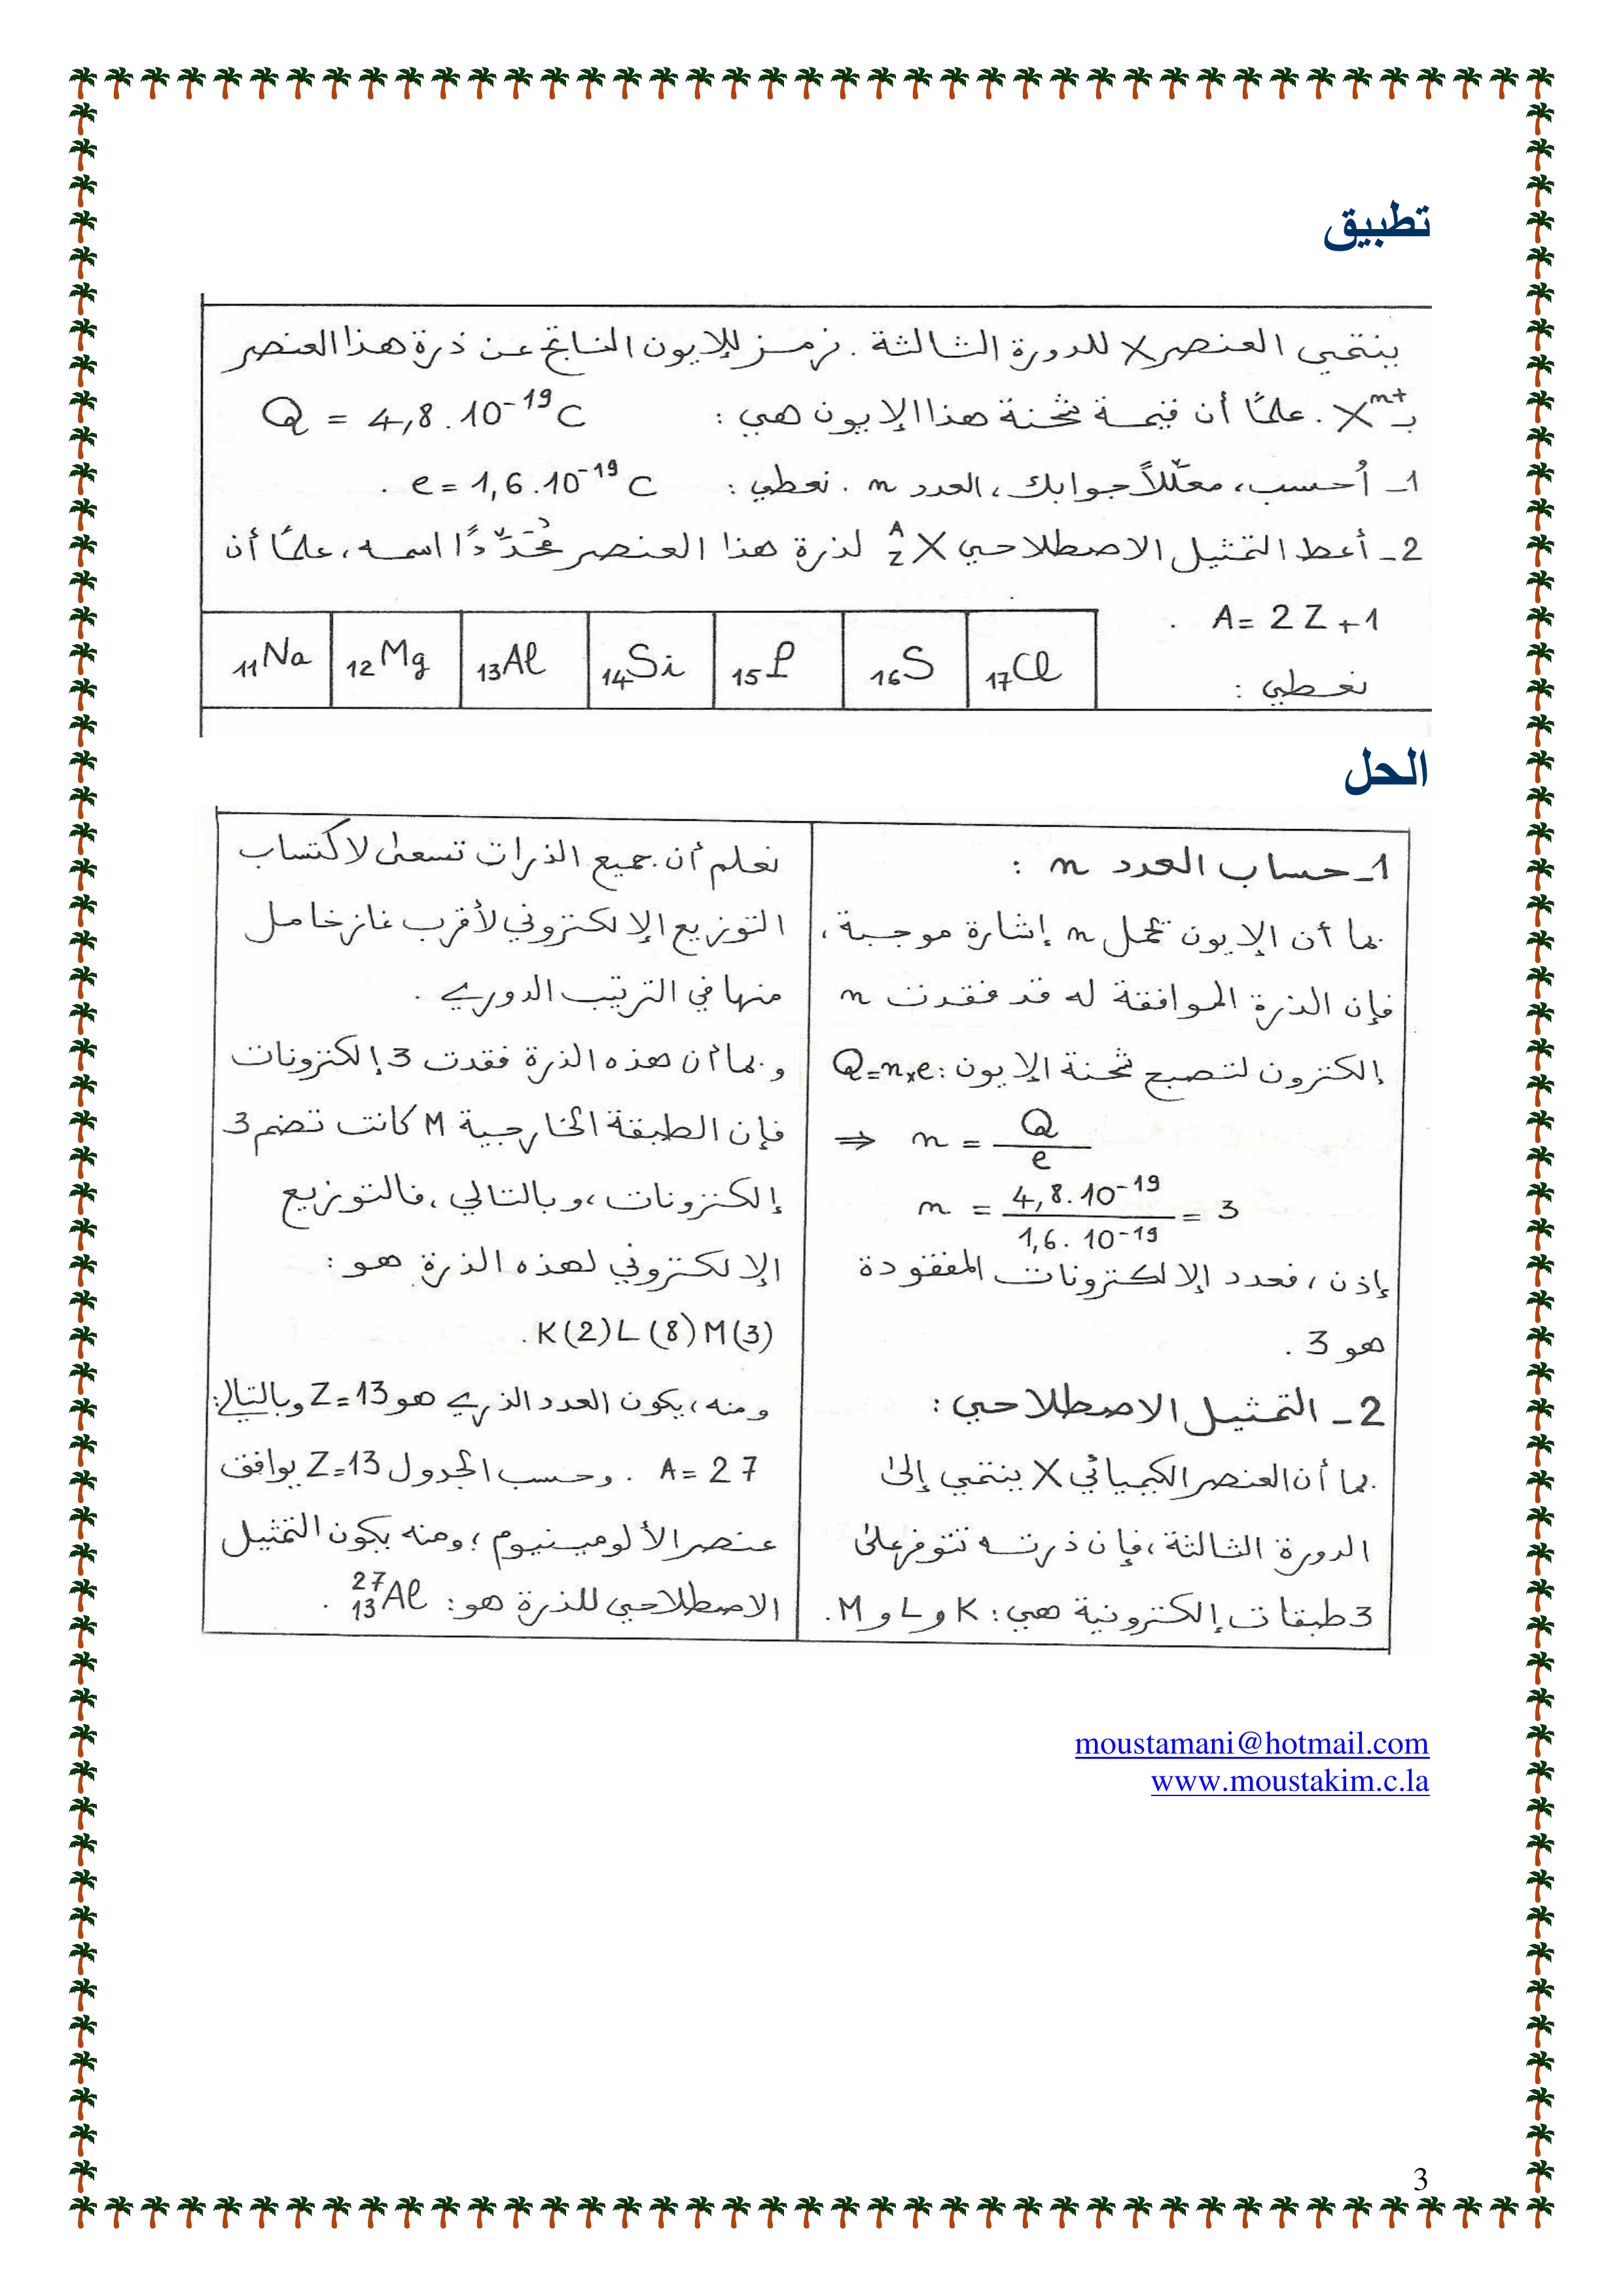 تطبيق
ينتمي العنصر X للدورة الثالثة . نرمز للإيون الناتج عن ذرة هذا العنصر
بـ Xⁿ⁺ . علمًا أن قيمة شحنة هذا الإيون هي : Q = 4,8.10⁻¹⁹ C
1_ أحسب، معلّلاً جوابك، العدد n . نعطي : e = 1,6.10⁻¹⁹ C .
2_ أعط التمثيل الاصطلاحي ᴬ_Z X لذرة هذا العنصر مُحَدِّدًا اسمه، علمًا أن
A = 2Z + 1 .
نعطي :
₁₁Na ₁₂Mg ₁₃Al ₁₄Si ₁₅P ₁₆S ₁₇Cl
الحل
1_ حساب العدد n :
بما أن الإيون يحمل n إشارة موجبة ،
فإن الذرة الموافقة له قد فقدت n
إلكترون لتصبح شحنة الإيون : Q=n×e
⇒ n = Q/e
n = 4,8.10⁻¹⁹/1,6.10⁻¹⁹ = 3
إذن ، فعدد الإلكترونات المفقودة
هو 3 .
2_ التمثيل الاصطلاحي :
بما أن العنصر الكيميائي X ينتمي إلى
الدورة الثالثة ، فإن ذرته تتوفر على
3 طبقات إلكترونية هي : K و L و M .
نعلم أن جميع الذرات تسعى لاكتساب
التوزيع الإلكتروني لأقرب غاز خامل
منها في الترتيب الدوري .
و بما أن هذه الذرة فقدت 3 إلكترونات
فإن الطبقة الخارجية M كانت تضم 3
إلكترونات ، وبالتالي ، فالتوزيع
الإلكتروني لهذه الذرة هو :
K(2) L(8) M(3) .
ومنه ، يكون العدد الذري هو Z=13 وبالتالي :
A = 27 . وحسب الجدول Z=13 يوافق
عنصر الألومينيوم ؛ ومنه يكون التمثيل
الاصطلاحي للذرة هو : ²⁷₁₃Al .
moustamani@hotmail.com
www.moustakim.c.la
3